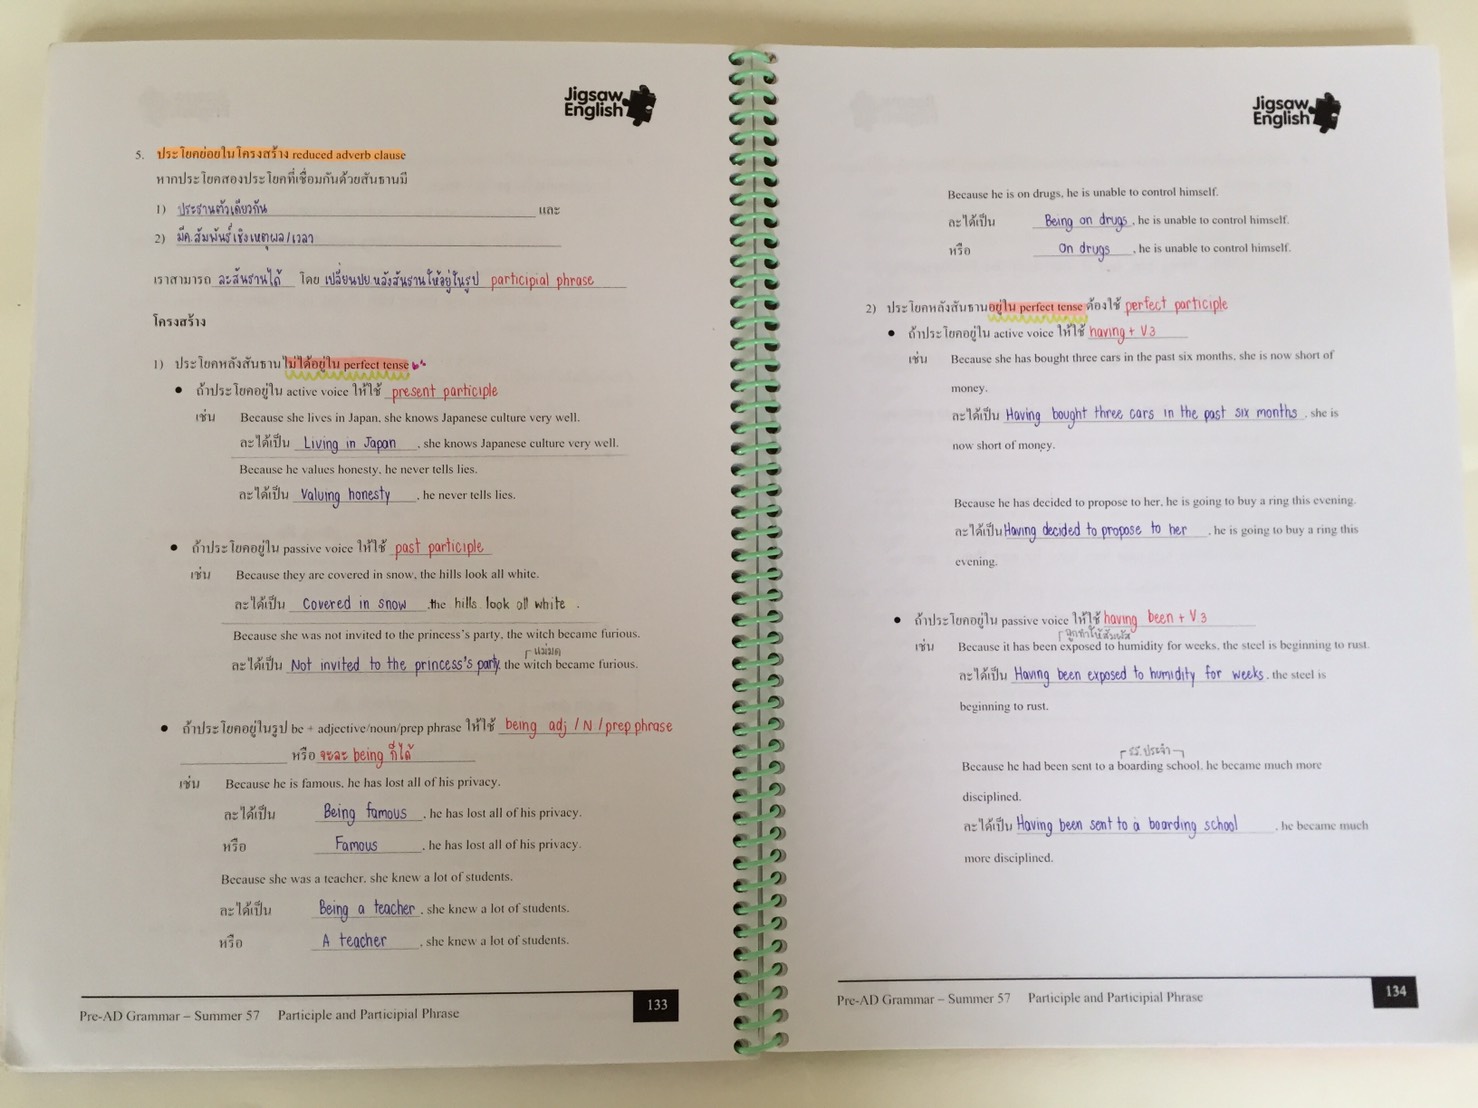 Jigsaw
English
5. ประโยคย่อยในโครงสร้าง reduced adverb clause
หากประโยคสองประโยคที่เชื่อมกันด้วยสันธานมี
1) ประธานตัวเดียวกัน และ
2) มีค.สัมพันธ์เชิงเหตุผล/เวลา
เราสามารถ ละสันธานได้ โดย เปลี่ยนปย.หลังสันธานให้อยู่ในรูป participial phrase
โครงสร้าง
1) ประโยคหลังสันธานไม่ได้อยู่ใน perfect tense
• ถ้าประโยคอยู่ใน active voice ให้ใช้ present participle
เช่น Because she lives in Japan, she knows Japanese culture very well.
ละได้เป็น Living in Japan, she knows Japanese culture very well.
Because he values honesty, he never tells lies.
ละได้เป็น Valuing honesty, he never tells lies.
• ถ้าประโยคอยู่ใน passive voice ให้ใช้ past participle
เช่น Because they are covered in snow, the hills look all white.
ละได้เป็น Covered in snow, the hills look all white.
Because she was not invited to the princess's party, the witch became furious.
แม่มด
ละได้เป็น Not invited to the princess's party, the witch became furious.
• ถ้าประโยคอยู่ในรูป be + adjective/noun/prep phrase ให้ใช้ being adj / N / prep phrase
หรือ จะละ being ก็ได้
เช่น Because he is famous, he has lost all of his privacy.
ละได้เป็น Being famous, he has lost all of his privacy.
หรือ Famous, he has lost all of his privacy.
Because she was a teacher, she knew a lot of students.
ละได้เป็น Being a teacher, she knew a lot of students.
หรือ A teacher, she knew a lot of students.
Pre-AD Grammar – Summer 57 Participle and Participial Phrase 133
Jigsaw
English
Because he is on drugs, he is unable to control himself.
ละได้เป็น Being on drugs, he is unable to control himself.
หรือ On drugs, he is unable to control himself.
2) ประโยคหลังสันธานอยู่ใน perfect tense ต้องใช้ perfect participle
• ถ้าประโยคอยู่ใน active voice ให้ใช้ having + V3
เช่น Because she has bought three cars in the past six months, she is now short of
money.
ละได้เป็น Having bought three cars in the past six months, she is
now short of money.
Because he has decided to propose to her, he is going to buy a ring this evening.
ละได้เป็น Having decided to propose to her, he is going to buy a ring this
evening.
• ถ้าประโยคอยู่ใน passive voice ให้ใช้ having been + V3
ถูกทำให้สัมผัส
เช่น Because it has been exposed to humidity for weeks, the steel is beginning to rust.
ละได้เป็น Having been exposed to humidity for weeks, the steel is
beginning to rust.
รร.ประจำ
Because he had been sent to a boarding school, he became much more
disciplined.
ละได้เป็น Having been sent to a boarding school, he became much
more disciplined.
Pre-AD Grammar – Summer 57 Participle and Participial Phrase 134